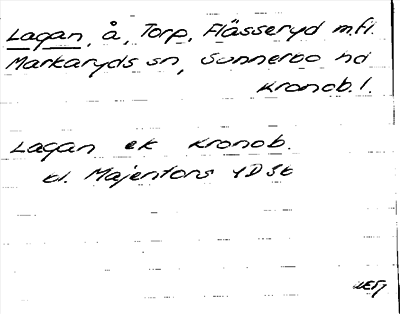 Lagan, å, Torp, Flässeryd m.fl.
Markaryds sn, Sunnerbo hd
Kronob. l.
Lagan ek Kronob.
kl. Majentons 4D5k